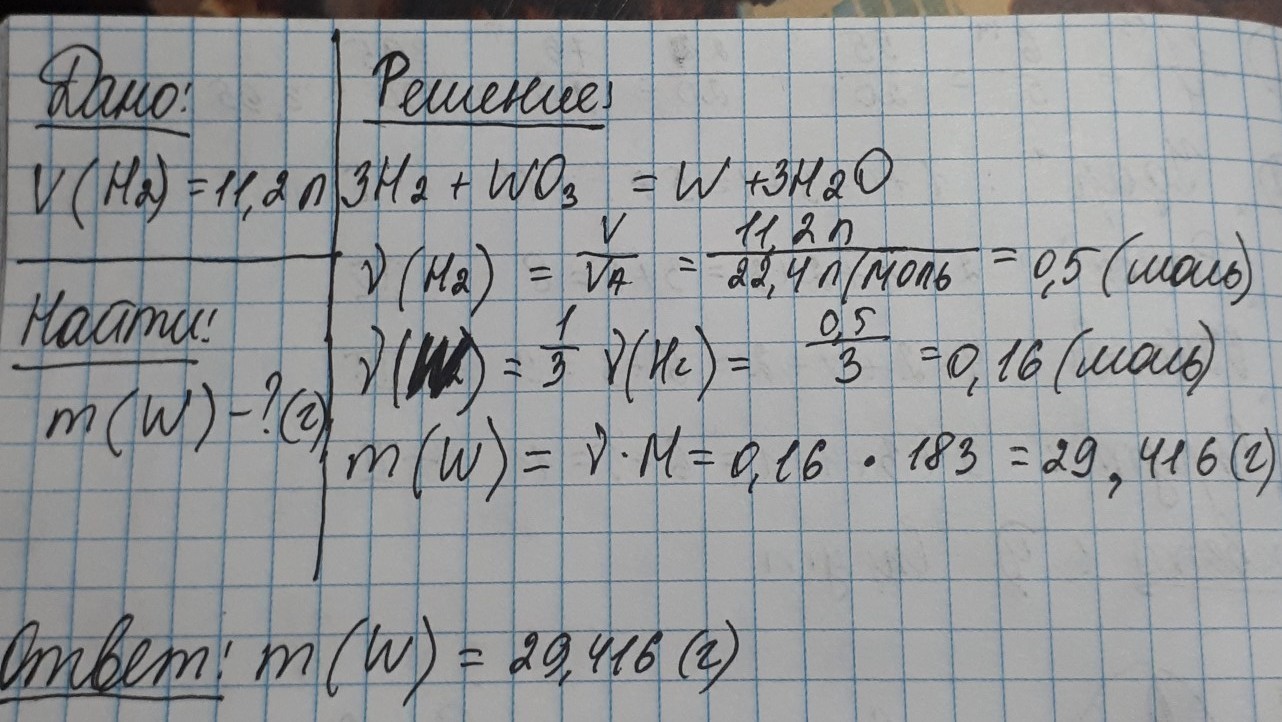 Дано:
V(H2) = 11,2 л
Найти:
m(W) - ? (г)
Решение:
3H2 + WO3 = W + 3H2O
ν(H2) = V/VA = 11,2 л/22,4 л/моль = 0,5 (моль)
ν(W) = 1/3 ν(H2) = 0,5/3 = 0,16 (моль)
m(W) = ν · M = 0,16 · 183 = 29,416 (г)
Ответ: m(W) = 29,416 (г)